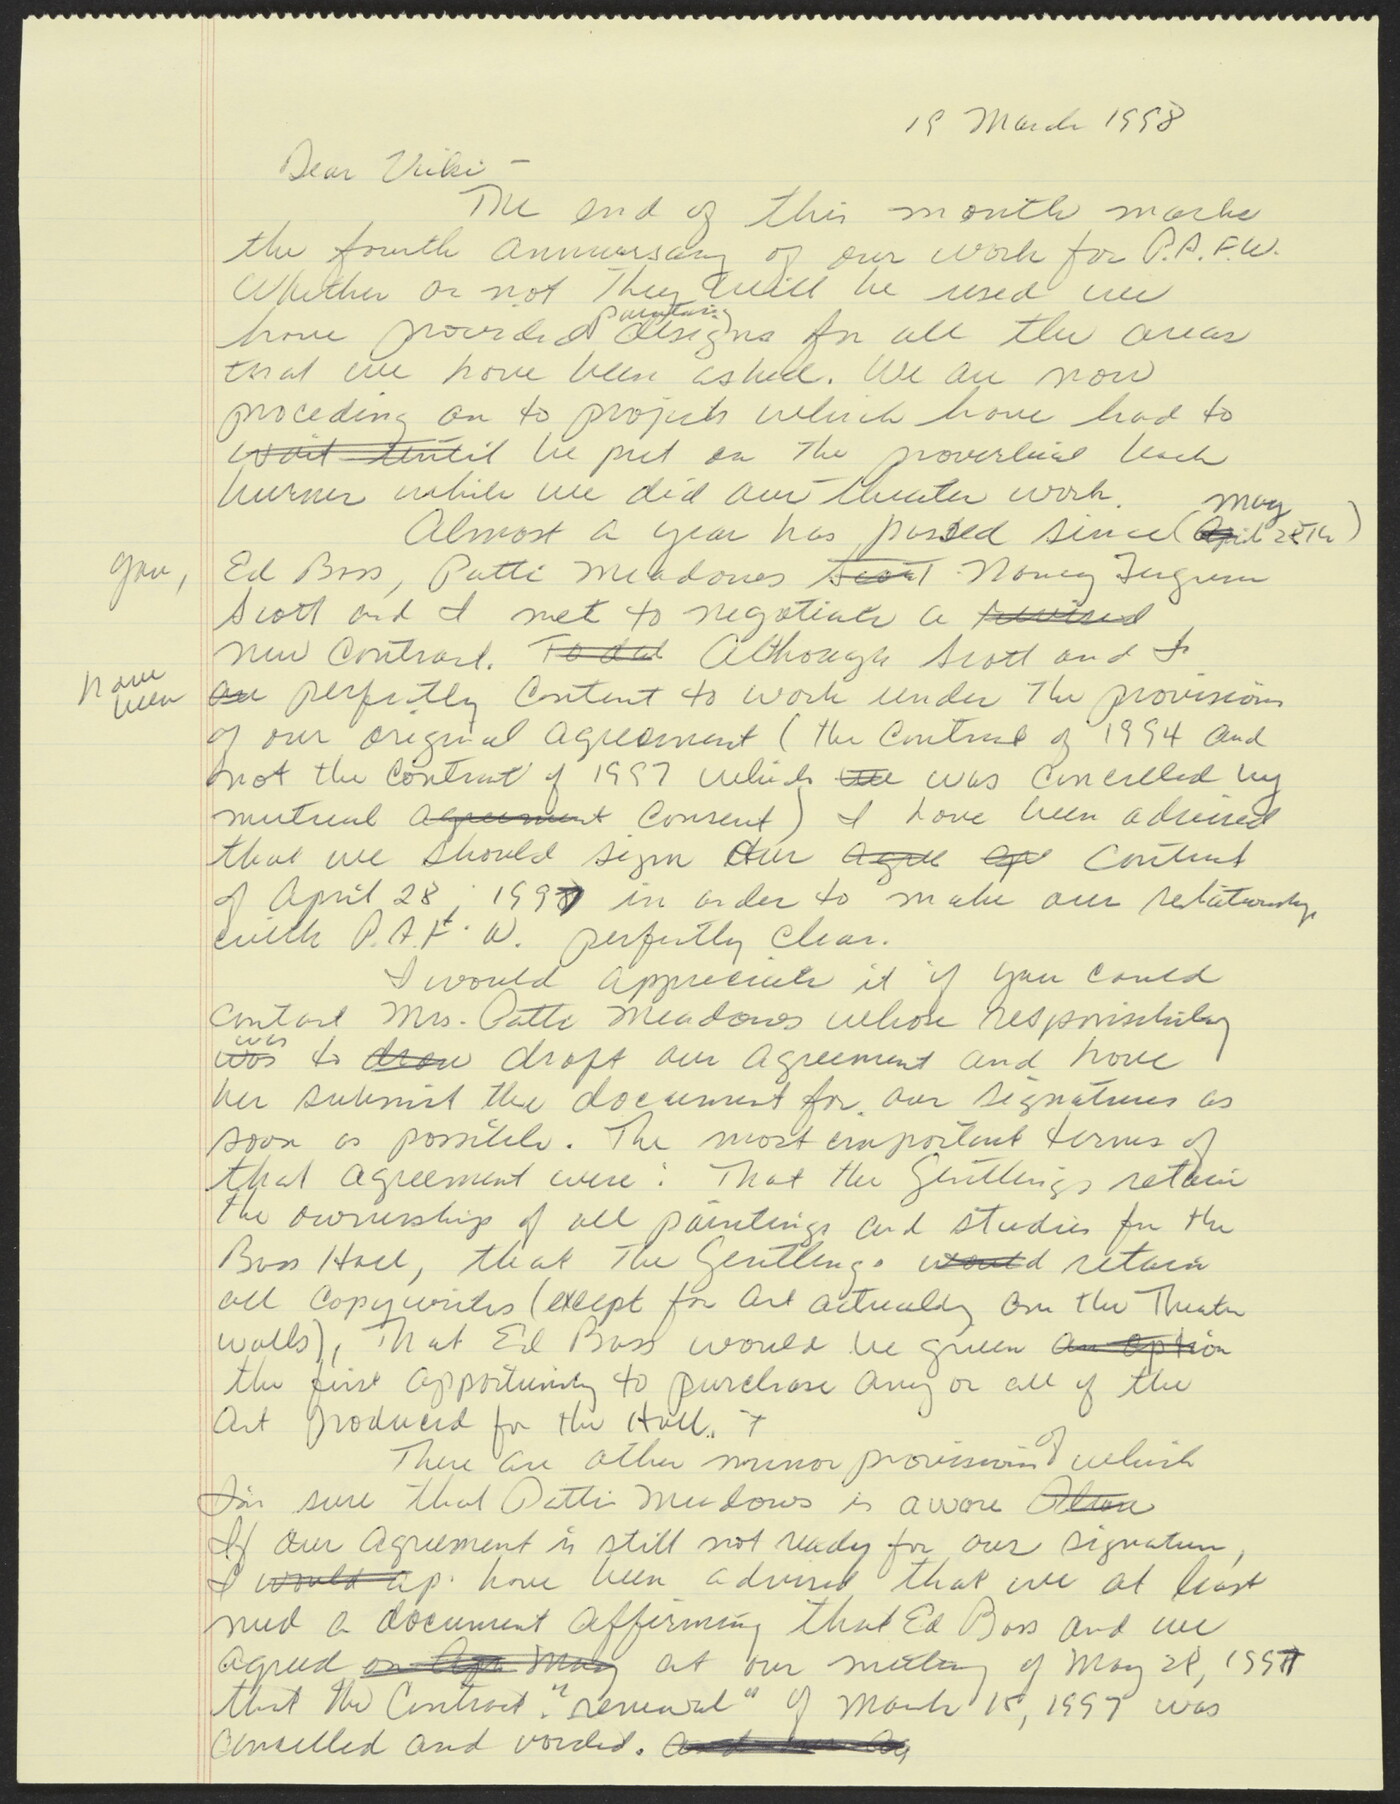 19 March 1998
Dear Vicki –
The end of this month marks
the fourth anniversary of our work for P.A.F.W.
Whether or not They will be used we
painting
have provided designs for all the areas
that we have been asked. We are now
proceding on to projects which have had to
wait until be put on the proverbial back
burner while we did our theater work.
May
Almost a year has passed since (April 28th)
you, Ed Bass, Patti Meadows Scott Nancy Ferguson
Scott and I met to negotiate a revised
new contract. Although Scott and I
have been are perfectly content to work under the provisions
of our original agreement (the contract of 1994 and
not the contract of 1997 which we was cancelled by
mutual agreement consent) I have been advised
that we should sign our agree contract
of April 28, 1997 in order to make our relationship
with P.A.F.W. perfectly clear.
I would appreciate it if you could
contact Mrs. Patti Meadows whose responsibility
was
was to draw draft our agreement and have
her submit the document for our signatures as
soon as possible. The most important terms of
that agreement were: That the Gentlings retain
the ownership of all paintings and studies for the
Bass Hall, that The Gentlings would retain
all copywrites (except for art actually on the Theater
walls), That Ed Bass would be given an option
the first opportunity to purchase any or all of the
art produced for the Hall.
There are other minor provisions of which
I'm sure that Patti Meadows is aware
If our agreement is still not ready for our signature,
I would ap. have been advised that we at least
need a document affirming that Ed Bass and we
agreed on Apr May at our meeting of May 28, 1997
that the Contract "renewal" of March 15, 1997 was
cancelled and voided.